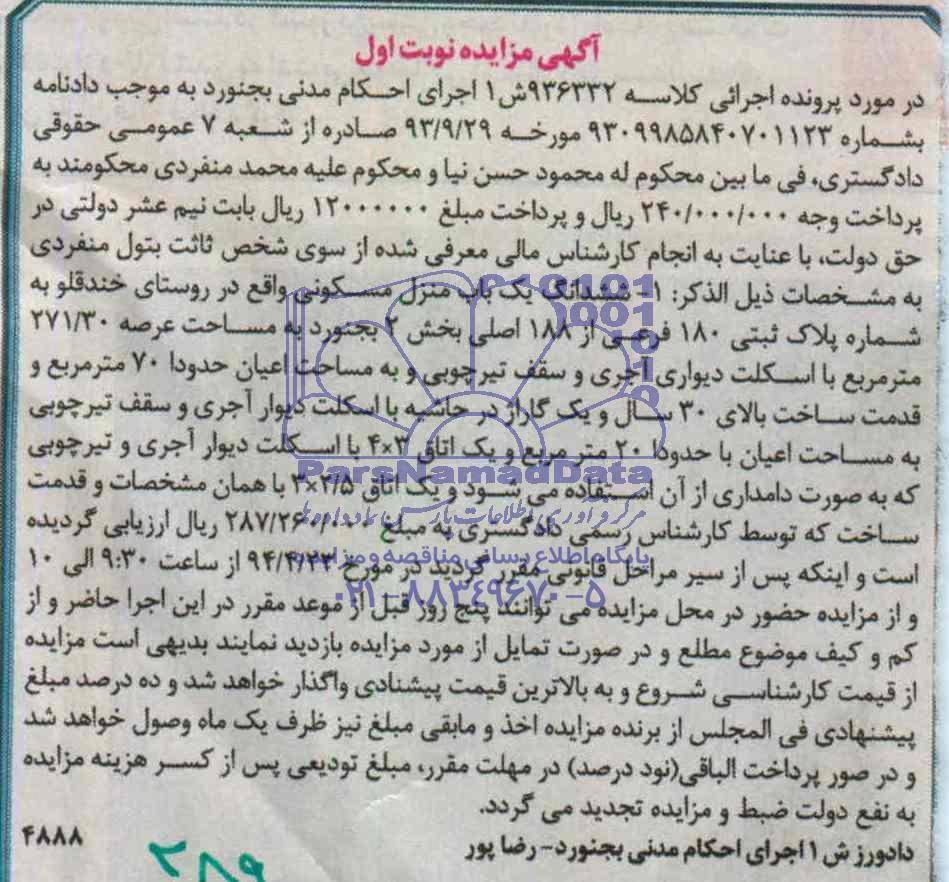 آگهی مزایده نوبت اول
در مورد پرونده اجرائی کلاسه ۹۳۶۳۳۲ش۱ اجرای احکام مدنی بجنورد به موجب دادنامه
بشماره ۹۳۰۹۹۸۵۸۴۰۷۰۱۱۲۳ مورخه ۹۳/۹/۲۹ صادره از شعبه ۷ عمومی حقوقی
دادگستری، فی ما بین محکوم له محمود حسن نیا و محکوم علیه محمد منفردی محکومند به
پرداخت وجه ۲۴۰/۰۰۰/۰۰۰ ریال و پرداخت مبلغ ۱۲۰۰۰۰۰۰ ریال بابت نیم عشر دولتی در
حق دولت، با عنایت به انجام کارشناس مالی معرفی شده از سوی شخص ثاثت بتول منفردی
به مشخصات ذیل الذکر: ۱- ششدانگ یک باب منزل مسکونی واقع در روستای خندقلو به
شماره پلاک ثبتی ۱۸۰ فرعی از ۱۸۸ اصلی بخش ۲ بجنورد به مساحت عرصه ۲۷۱/۳۰
مترمربع با اسکلت دیواری آجری و سقف تیرچوبی و به مساحت اعیان حدودا ۷۰ مترمربع و
قدمت ساخت بالای ۳۰ سال و یک گاراژ در حاشیه با اسکلت دیوار آجری و سقف تیرچوبی
به مساحت اعیان با حدودا ۲۰ متر مربع و یک اتاق ۳×۴ با اسکلت دیوار آجری و تیرچوبی
که به صورت دامداری از آن استفاده می شود و یک اتاق ۲/۵×۳ با همان مشخصات و قدمت
ساخت که توسط کارشناس رسمی دادگستری به مبلغ ۲۸۷/۲۶۰/۰۰۰ ریال ارزیابی گردیده
است و اینکه پس از سیر مراحل قانونی مقرر گردید در مورخ ۹۴/۴/۲۳ از ساعت ۹:۳۰ الی ۱۰
و از مزایده حضور در محل مزایده می توانند پنج روز قبل از موعد مقرر در این اجرا حاضر و از
کم و کیف موضوع مطلع و در صورت تمایل از مورد مزایده بازدید نمایند بدیهی است مزایده
از قیمت کارشناسی شروع و به بالاترین قیمت پیشنادی واگذار خواهد شد و ده درصد مبلغ
پیشنهادی فی المجلس از برنده مزایده اخذ و مابقی مبلغ نیز ظرف یک ماه وصول خواهد شد
و در صور پرداخت الباقی(نود درصد) در مهلت مقرر، مبلغ تودیعی پس از کسر هزینه مزایده
به نفع دولت ضبط و مزایده تجدید می گردد.
دادورز ش ۱ اجرای احکام مدنی بجنورد- رضا پور
۴۸۸۸
۲۸۹
ParsNamadData
مرکز فرآوری اطلاعات پارس نماد داده ها
پایگاه اطلاع رسانی مناقصه و مزایده
۰۲۱-۸۸۳۴۹۶۷۰-۵